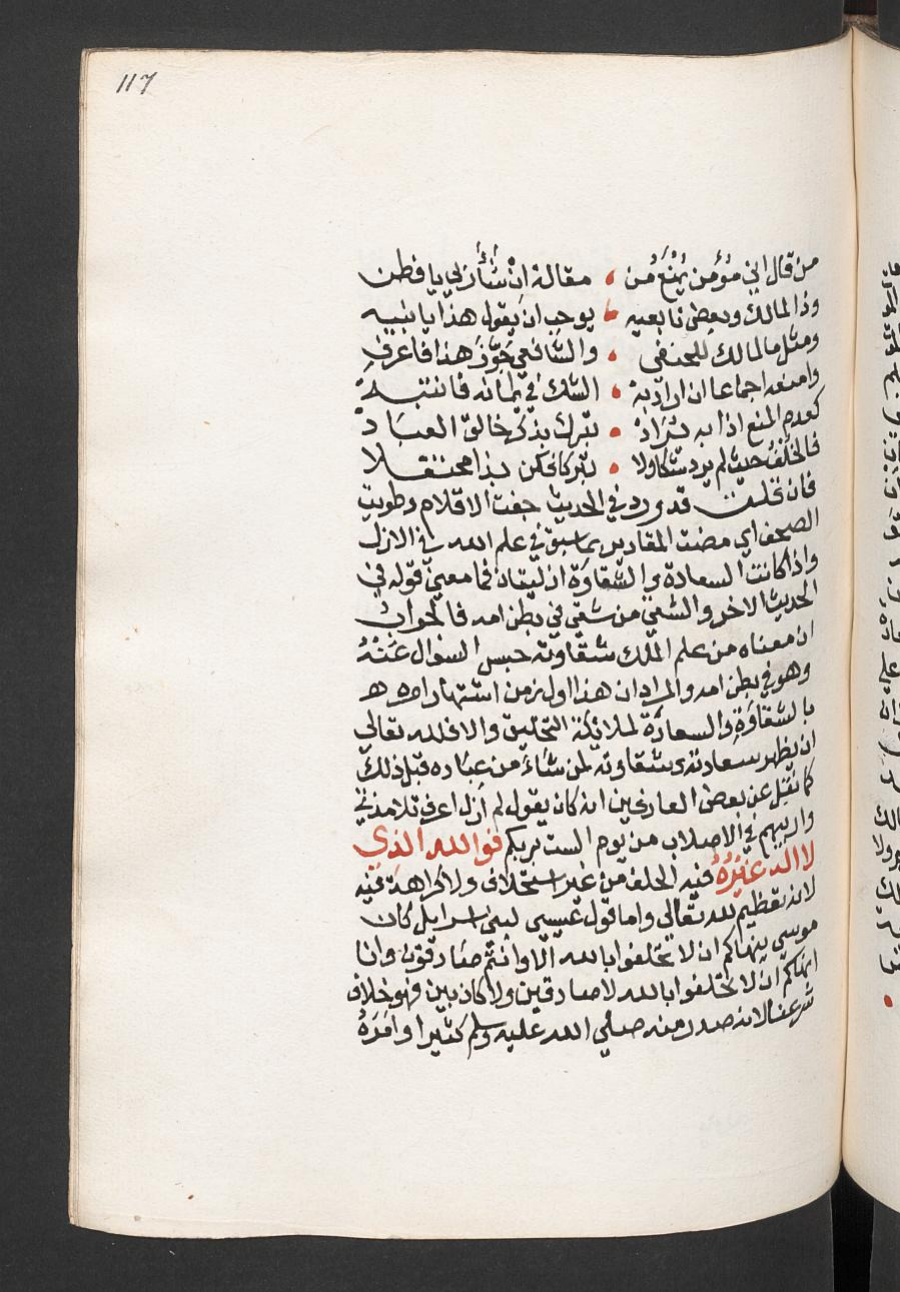 117
من قال اني مؤمن يُمْنَع مِن • مقالة اِنْ شأ ربي يا فطن
وذا لمالك وبعض تابعيه • يوجب ان يقول هذا يا نبيه
ومثل ما لمالك للحنفي • والشافعي جَوَّزَ هذا فاعرف
وامنعه اجماعا ان اراد به • الشك في ايمانه فانتبه
كعدم المنع اذا به يُرَادْ • تبرك بذكر خالق العباد
فالخلف حيث لم يرد شكا ولا • تبركا فكن بذا محتفلا
فان قلت قد ورد في الحديث جفت الاقلام وطويت
الصحف اي مضت المقادير بما سبق في علم الله في الازل
واذا كانت السعادة والشقاوة ازليتان فما معنى قوله في
الحديث الاخر والشقي من شقي في بطن امه فالجواب
ان معناه من علم الملك شقاوته حبس السوال عَنْهُ
وهو في بطن امه والمراد ان هذا اول زمن اشتهار امره
بالشقاوة والسعادة لملائكة التخليق والا فلله تعالي
ان يظهر سعادته وشقاوته لمن شاء من عباده قبل ذلك
كما نقل عن بعض العارفين انه كان يقول لم أزل اعرف تلامذتي
واربيهم في الاصلاب من يوم الست بربكم فوالله الذي
لا اله غَيْرُهُ فيه الحلف من غير استحلاف ولا كراهة فيه
لانه تعظيم لله تعالي واما قول عيسي لبني اسرايل كان
موسي ينهاكم ان لا تحلفوا بالله الا وانتم صادقون وانا
انهاكم ان لا تحلفوا بالله لا صادقين ولا كاذبين فهو خلاف
شرعنا لانه صدر منه صلي الله عليه وسلم كثيرا وامَرَهُ